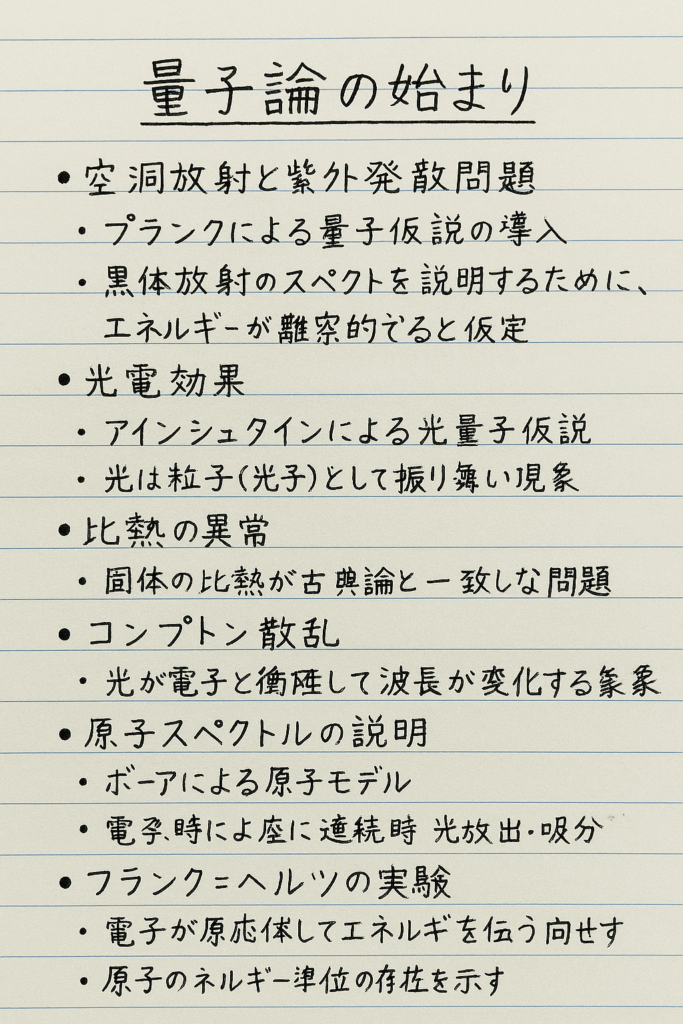 量子論の始まり
• 空洞放射と紫外発散問題
• プランクによる量子仮説の導入
• 黒体放射のスペクトを説明するために、
エネルギーが離察的でると仮定
• 光電効果
• アインシュタインによる光量子仮説
• 光は粒子(光子)として振り舞い現象
• 比熱の異常
• 固体の比熱が古典論と一致しな問題
• コンプトン散乱
• 光が電子と衝して波長が変化する象
• 原子スペクトルの説明
• ボーアによる原子モデル
• 電時によ座に連続時 光放出・吸分
• フランク=ヘルツの実験
• 電子が原応体してエネルギを伝う向せす
• 原子のネルギー準位の存在を示す